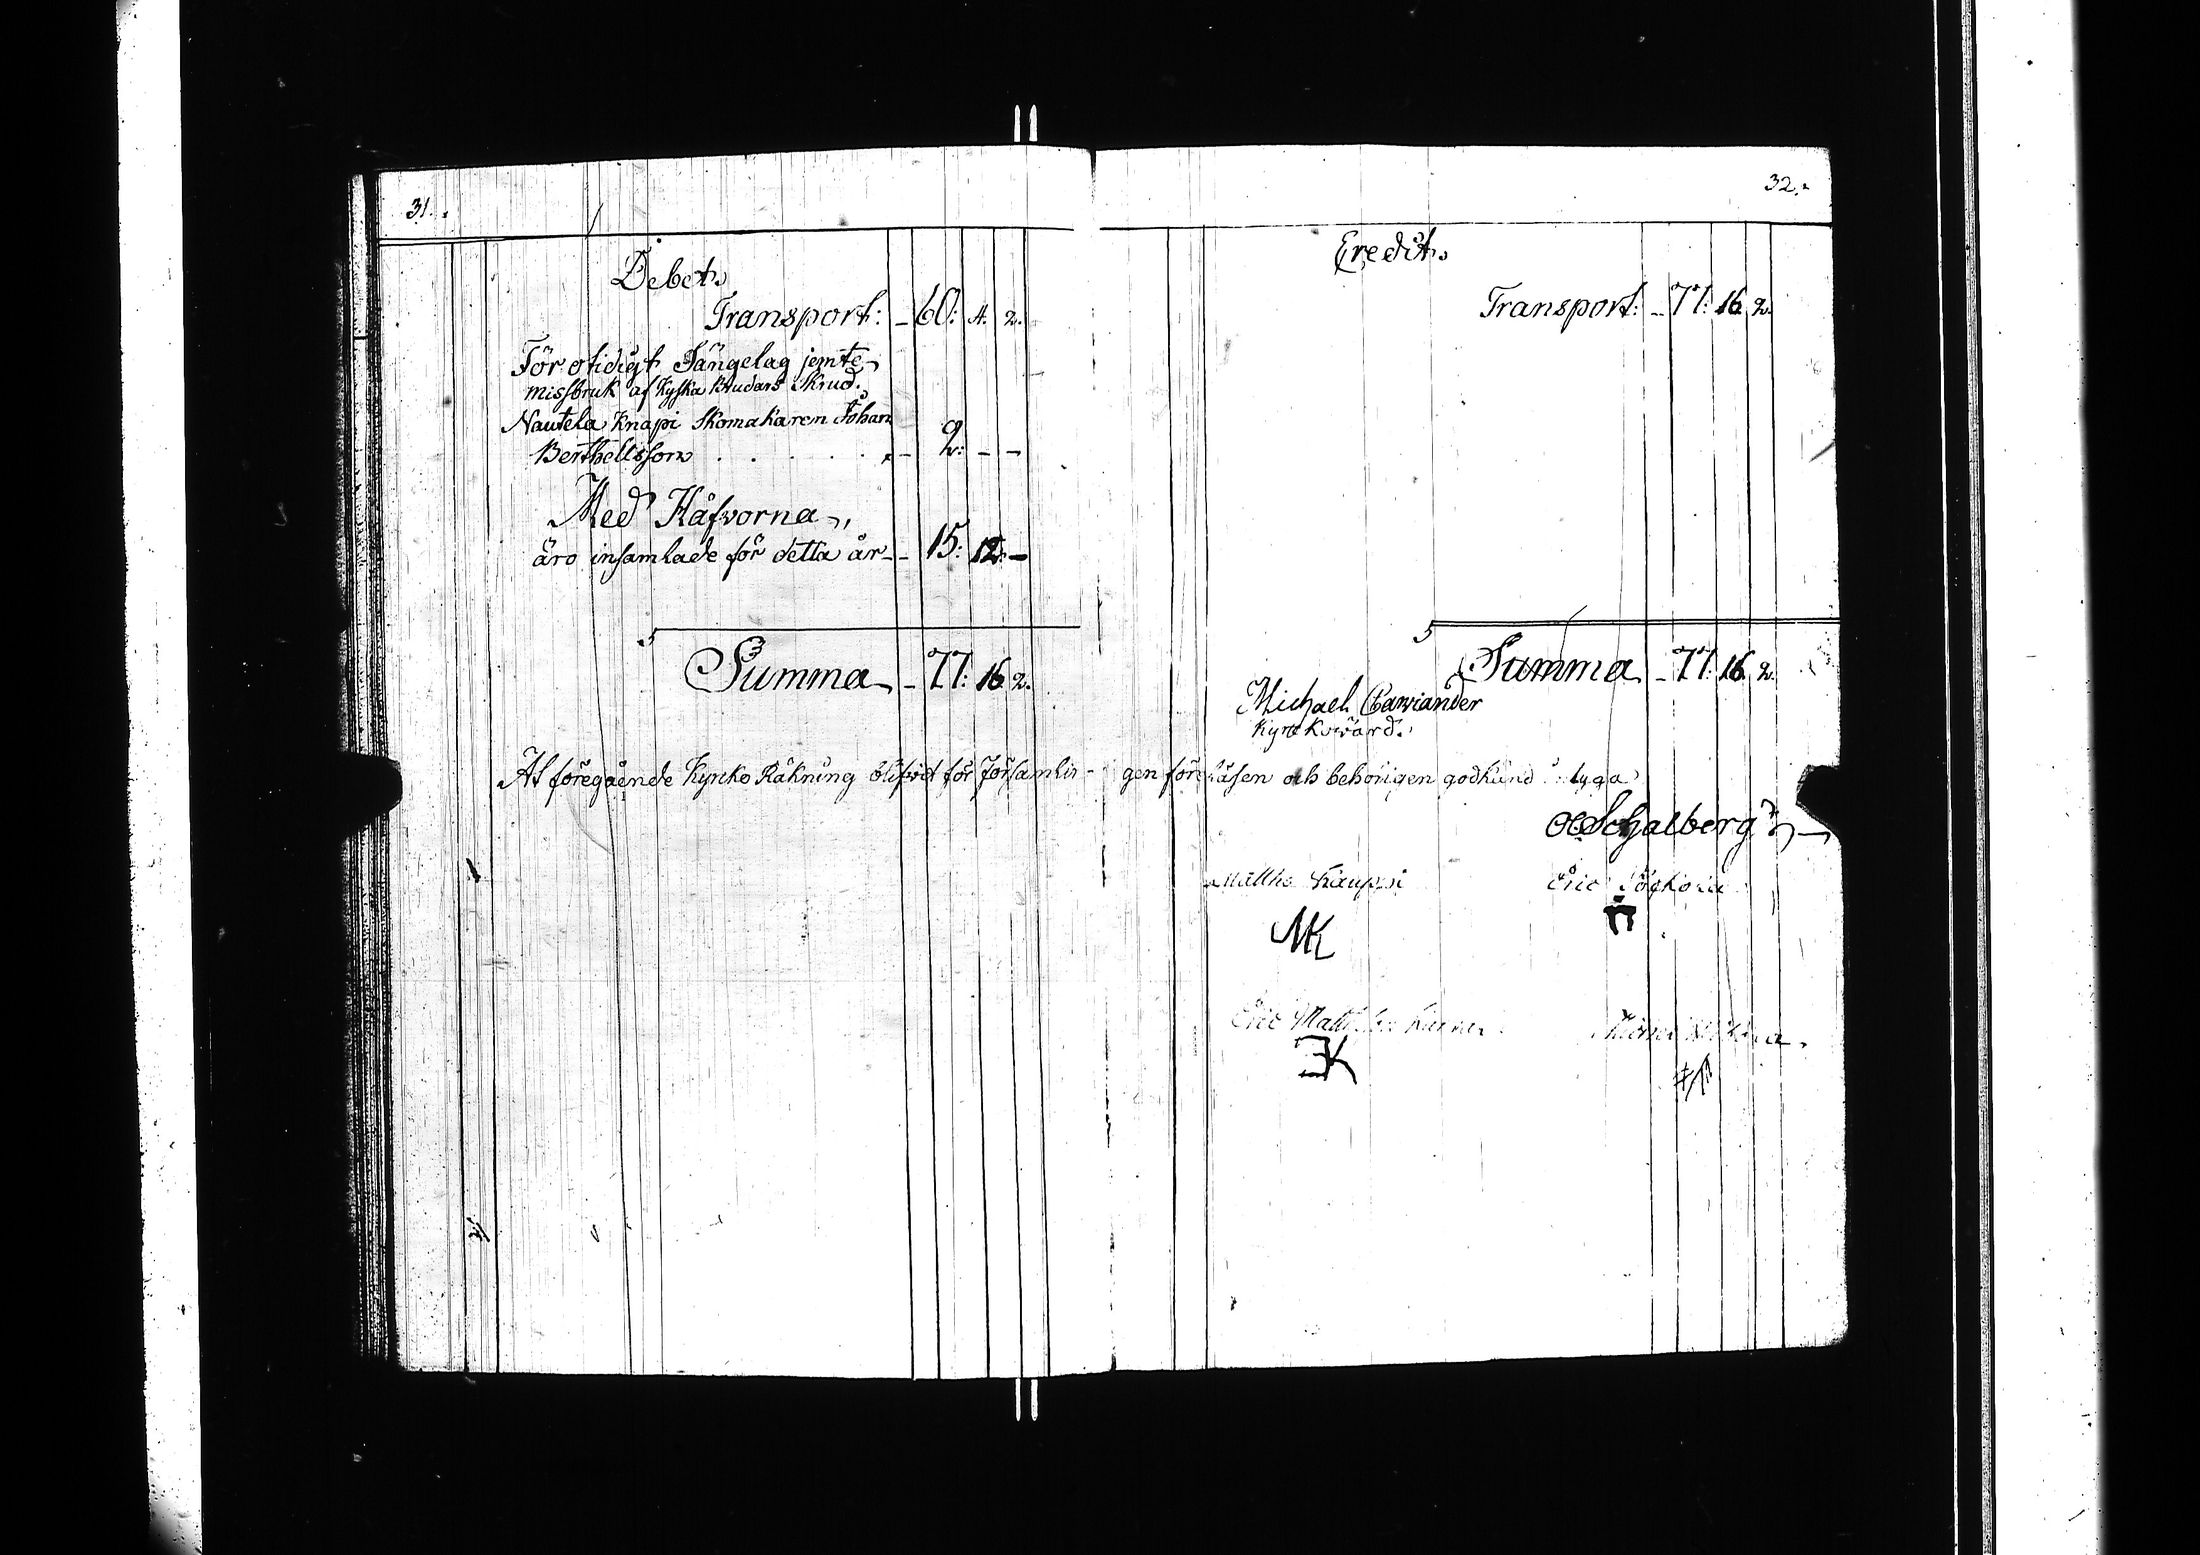 31.
Debet.
Transport: - 60: 4. 2.
För otidigt Sängelag jemte
missbruk af Kyska Brudars Skrud.
Nautela Knapi Skomakaren Johan
Berthellsson . . . . . . - 2: - -
Med Håfvorna,
äro insamlade för detta år - - 15: 12: -
Summa - 77: 16. 2.
32.
Credit.
Transport: - 77: 16. 2.
Summa - 77: 16. 2.
Michael
Kyrckowärd.
At föregående Kyrcko Räkning blifvit för Församlin- gen föreläsen och behörigen godkänd
Matths Kauppi
Eric
MK
Eric
EK